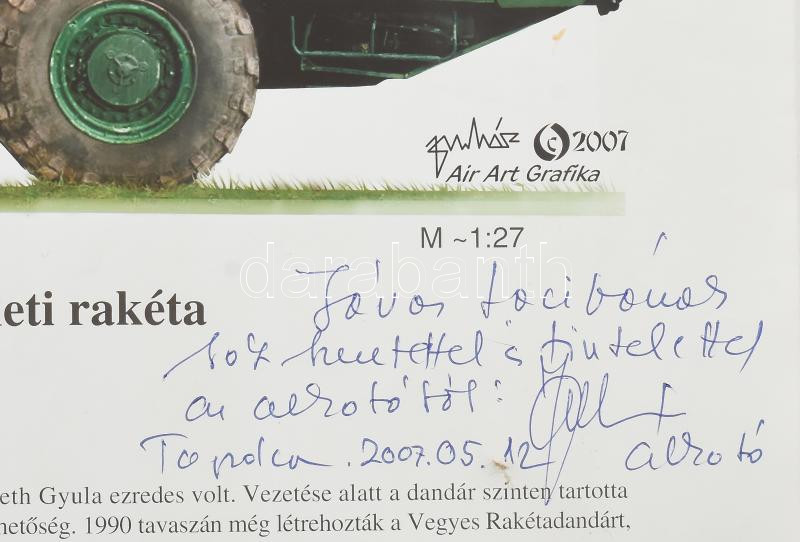 juhász © 2007
Air Art Grafika
M ~1:27
darabanth
leti rakéta
sok szeretettel és tisztelettel
az alkotótól:
Tapolca .2007.05.12
alkotó
eth Gyula ezredes volt. Vezetése alatt a dandár szinten tartotta
hetőség. 1990 tavaszán még létrehozták a Vegyes Rakétadandárt,